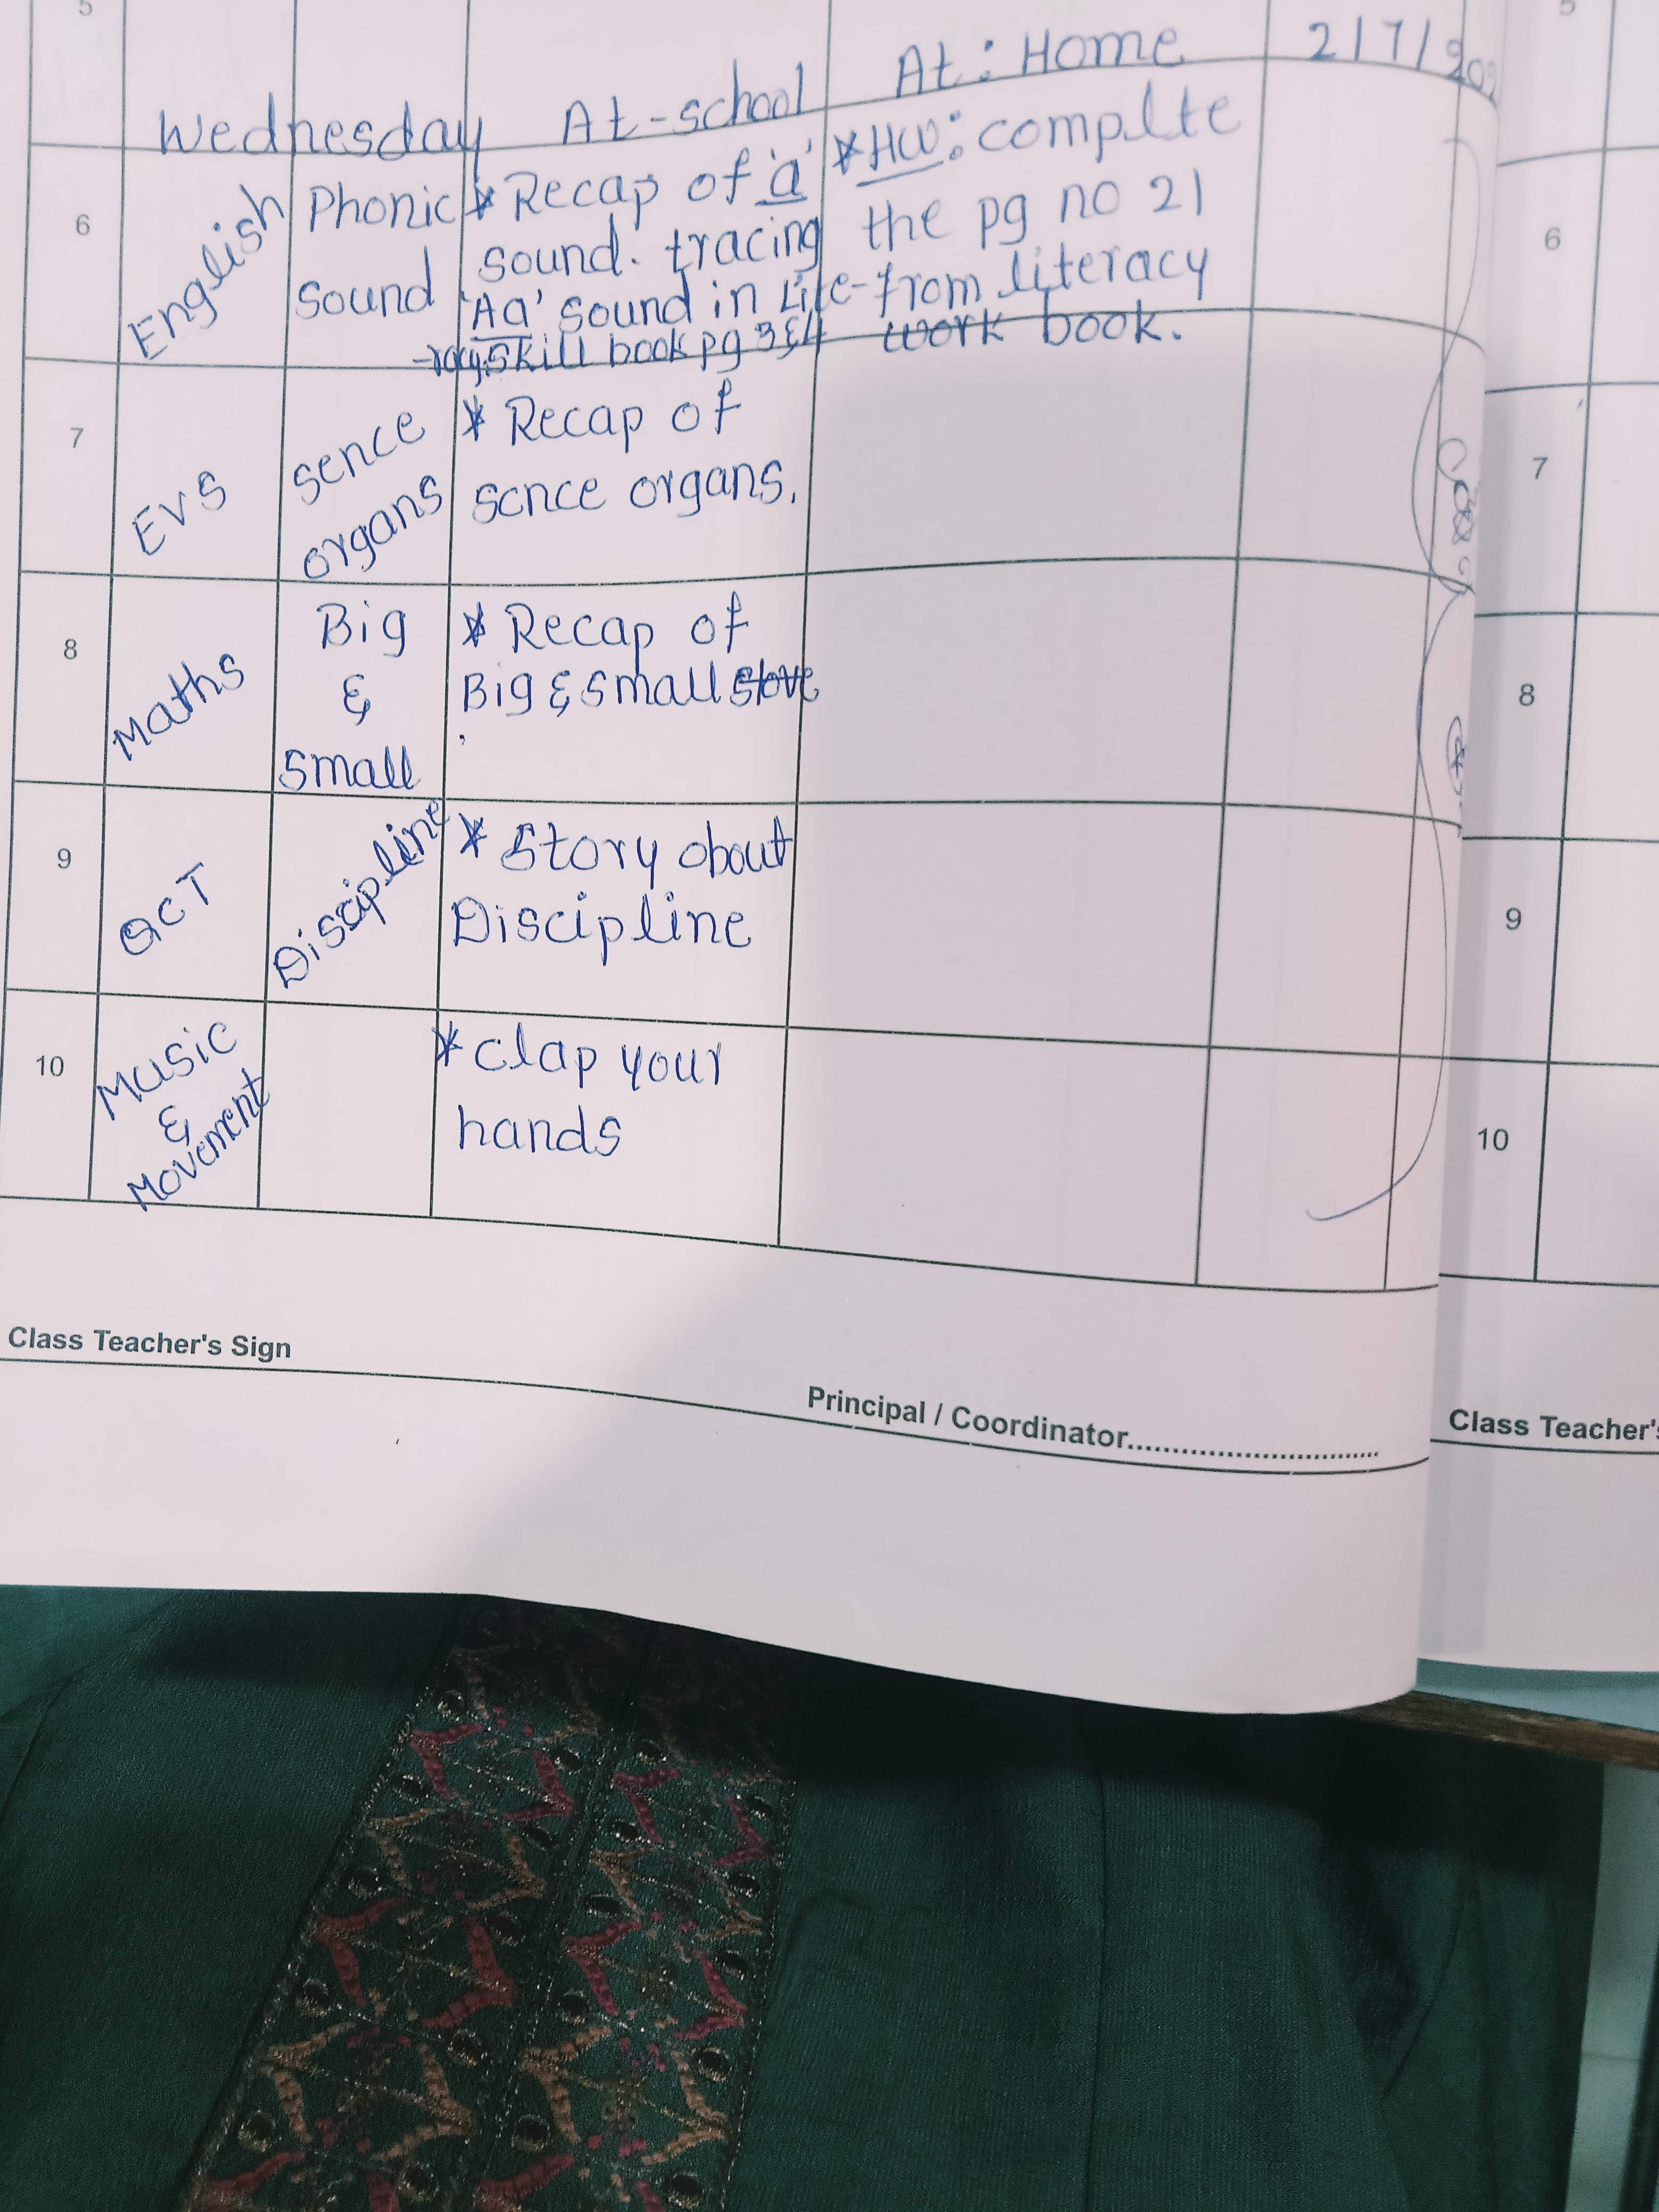 5
5
Wednesday At-school At: Home 2/7/202
6
English
Phonic
Sound
* Recap of 'a'
sound. tracing
'Aa' sound in Lite-
-racy skill book pg 3&4
*HW: complte
the pg no 21
from literacy
work book.
6
7
EVS
sence
organs
* Recap of
sence organs.
7
8
Maths
Big
&
small
* Recap of
Big & small
8
9
GCT
Discipline
* Story obout
Discipline
9
10
Music
&
Movement
* clap your
hands
10
Class Teacher's Sign
Principal / Coordinator..............................
Class Teacher's